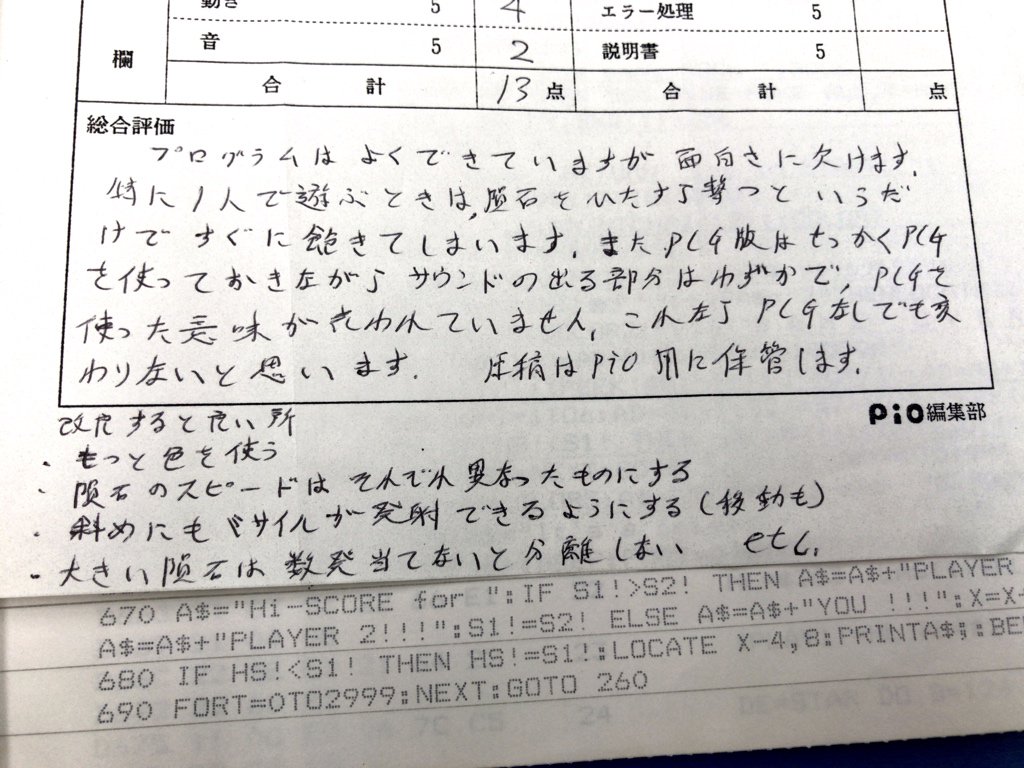 動き 5 4 エラー処理 5
音 5 2 説明書 5
欄
合 計 13 点 合 計 点
総合評価
プログラムはよくできていますが面白さに欠けます。
特に1人で遊ぶときは、隕石をひたすら撃つというだ
けですぐに飽きてしまいます。またPCG版はせっかくPCG
を使っておきながらサウンドの出る部分はわずかで、PCGを
使った意味が失われていません。これならPCGなしでも変
わりないと思います。 原稿はPiO用に保管します。
PiO編集部
改良すると良い所
・もっと色を使う
・隕石のスピードはそれぞれ異なったものにする
・斜めにもミサイルが発射できるようにする(移動も)
・大きい隕石は数発当てないと分離しない etc.
670 A$="Hi-SCORE for ":IF S1!>S2! THEN A$=A$+"PLAYER
A$=A$+"PLAYER 2!!!":S1!=S2! ELSE A$=A$+"YOU !!!":X=X-
680 IF HS!<S1! THEN HS!=S1!:LOCATE X-4,8:PRINTA$;:BE
690 FORT=0TO2999:NEXT:GOTO 260